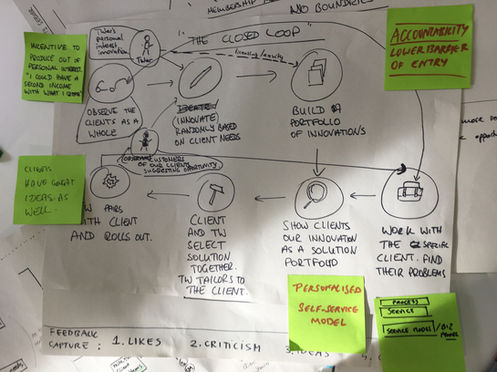 NO BOUNDARIES
INCENTIVE TO
PRODUCE OUT OF
PERSONAL INTEREST
"I COULD HAVE A
SECOND INCOME
WITH WHAT I
TWer's
personal
interest
innovation
TWer
"THE CLOSED LOOP"
licensing/annuity
ACCOUNTABILITY
LOWER BARRIER
OF ENTRY
OBSERVE THE
CLIENTS AS A
WHOLE
(INNOVATE)
RANDOMLY BASED
ON CLIENT NEEDS
BUILD A
PORTFOLIO
OF INNOVATIONS
CUSTOMERS
OF OUR CLIENTS
SUGGESTING OPPORTUNITY
CLIENTS
HAVE GREAT
IDEAS AS
WELL.
PAIRS
WITH CLIENT
AND ROLLS OUT.
CLIENT
AND TW
SELECT
SOLUTION
TOGETHER.
TW TAILORS TO
THE CLIENT.
SHOW CLIENTS
OUR INNOVATION
AS A SOLUTION
PORTFOLIO
WORK WITH
THE SPECIFIC
CLIENT. FIND
THEIR PROBLEMS
PERSONALISED
SELF-SERVICE
MODEL
PROCESS
SERVICE
SERVICE MODEL / BIZ
MODEL
FEEDBACK
CAPTURE : 1. LIKES 2. CRITICISM 3. IDEAS